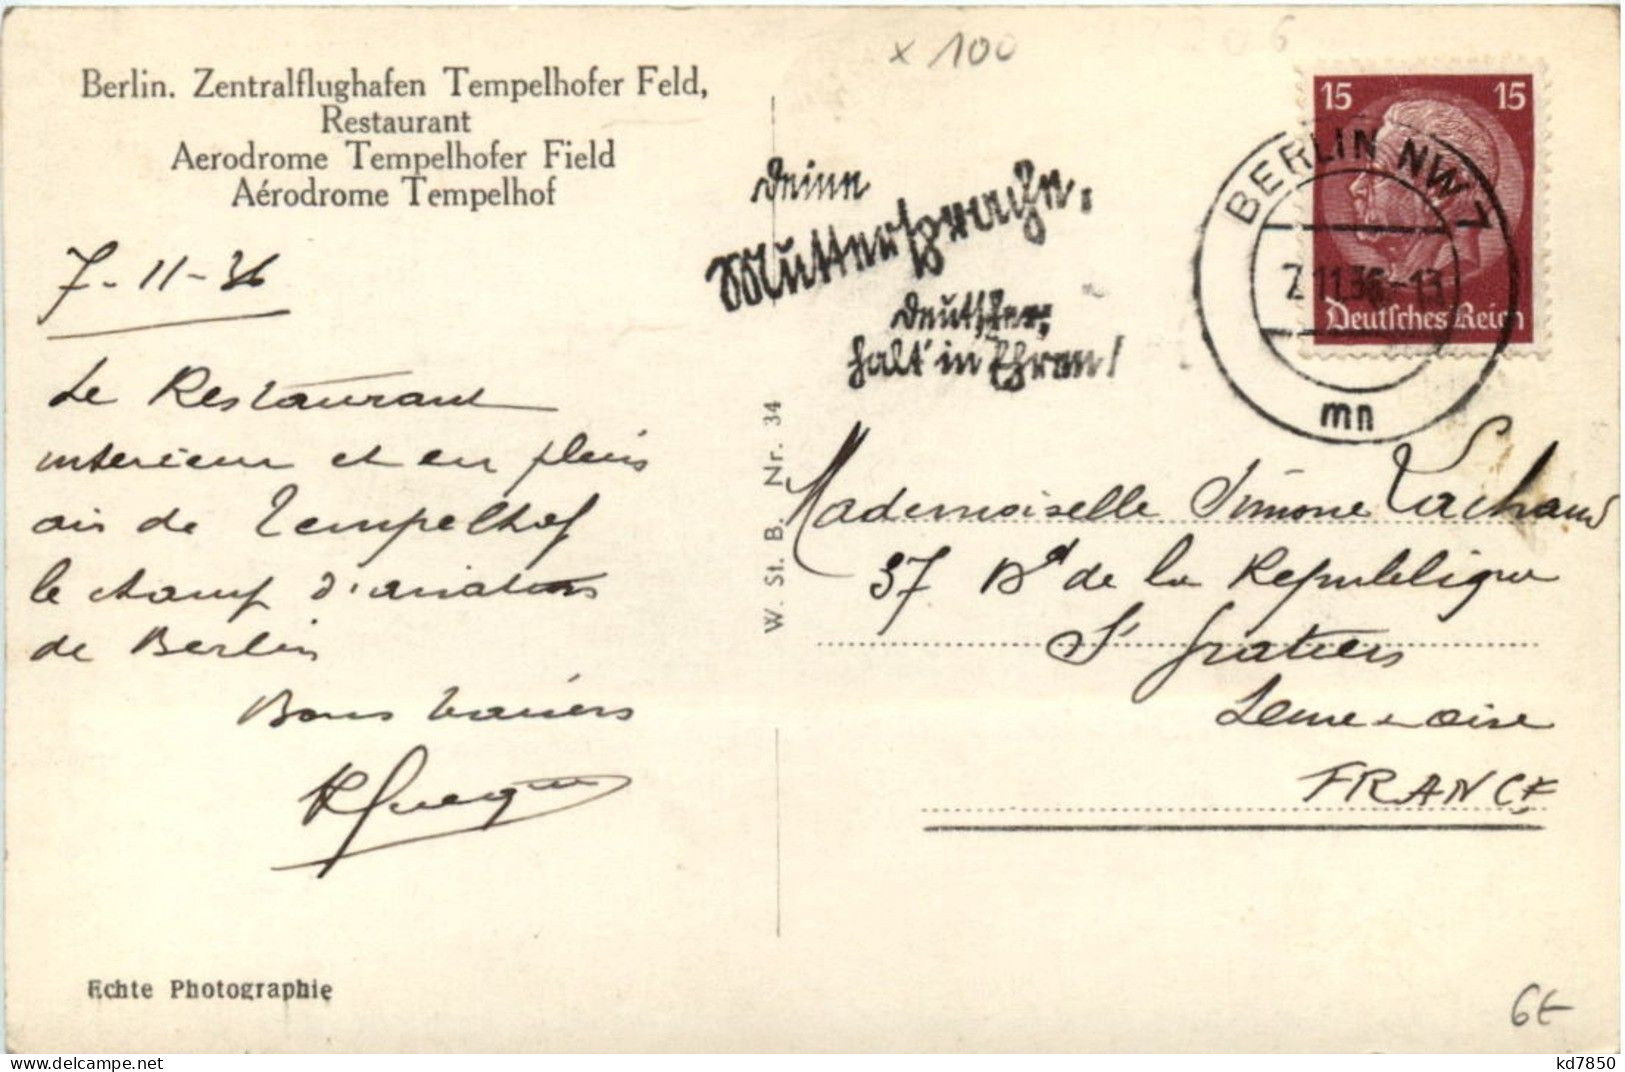 x 100
Berlin. Zentralflughafen Tempelhofer Feld,
Restaurant
Aerodrome Tempelhofer Field
Aérodrome Tempelhof
7-11-36
Le Restaurant
interieur et en plein
air de Tempelhof
le champ d'aviation
de Berlin
Bons baisers
Deine
Muttersprache,
Deutscher,
halt' in Ehren!
15 15
Deutsches Reich
BERLIN NW 7
7.11.36-13
mn
W. St. B. Nr. 34
Mademoiselle Simone Lachaud
37 Bd de la Republique
St Gratien
Seine et oise
FRANCE
Echte Photographie
6€
kd7850